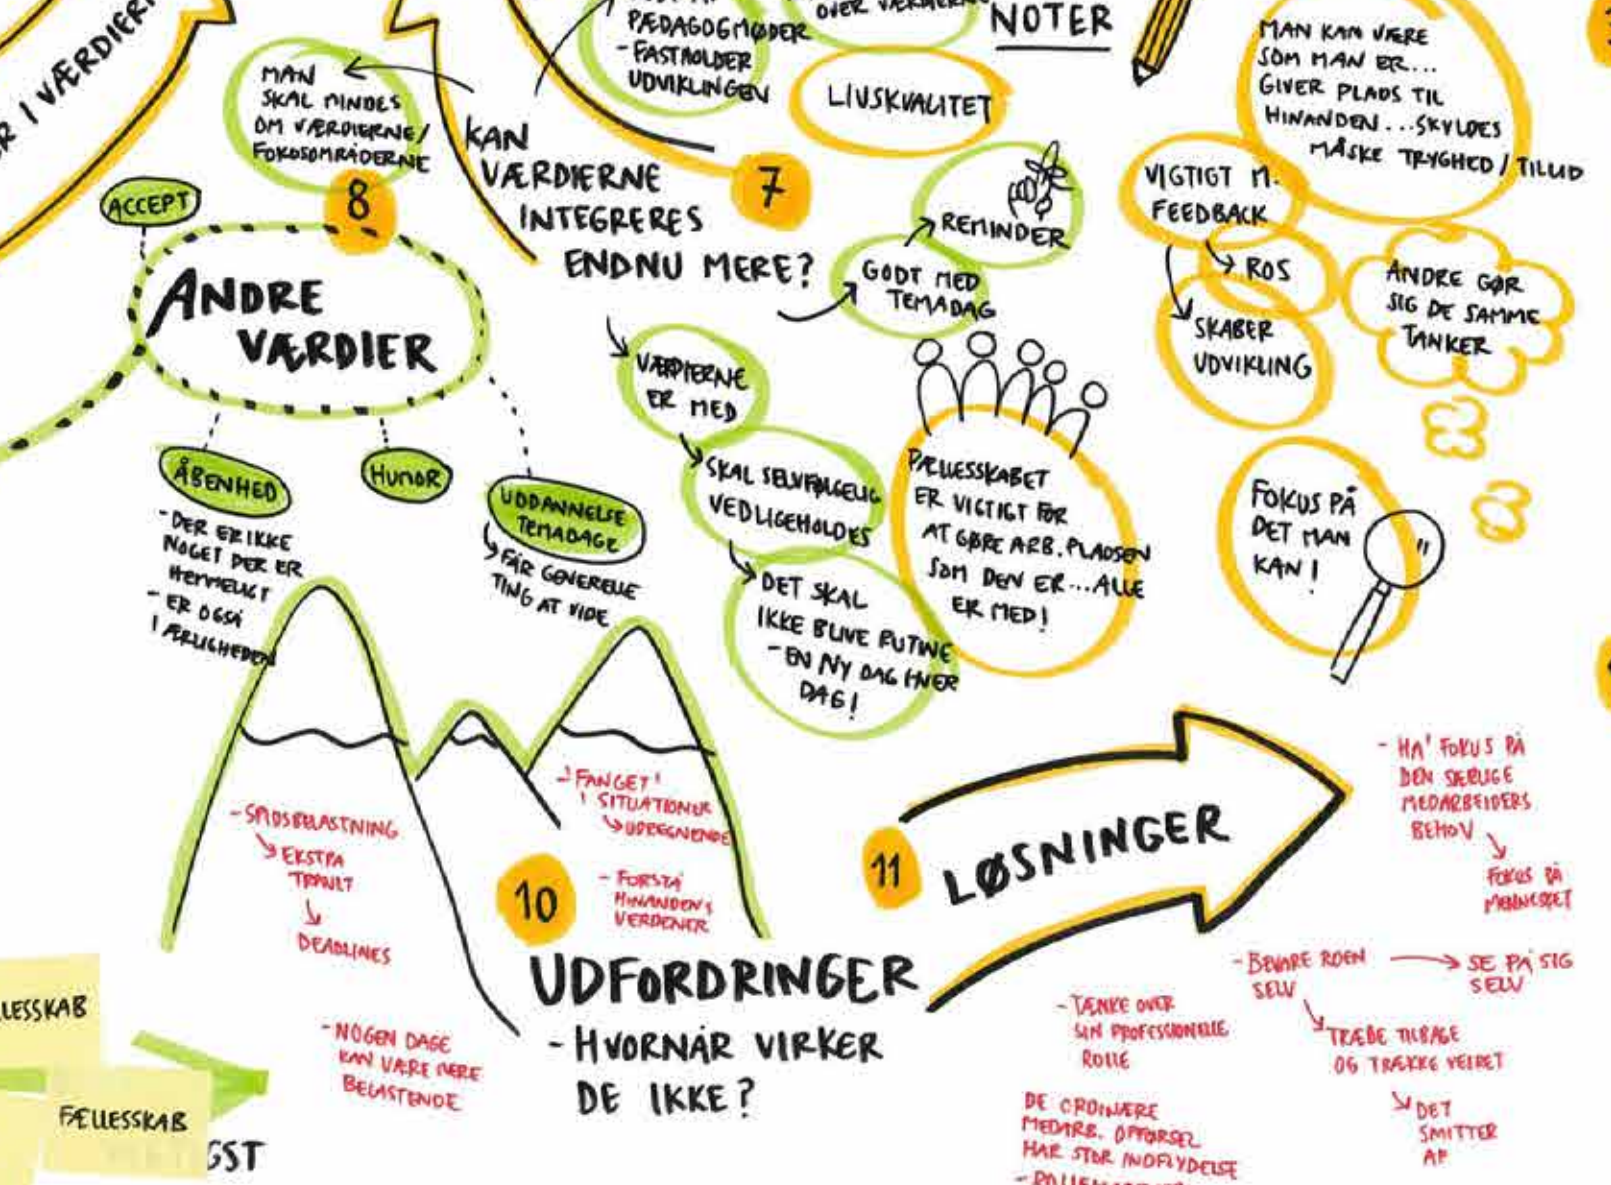 R I VÆRDIER
MAN
SKAL MINDES
OM VÆRDIERNE/
FOKUSOMRÅDERNE
8
ACCEPT
ANDRE
VÆRDIER
ÅBENHED
- DER ER IKKE
NOGET DER ER
HEMMELIGT
- ER OGSÅ
I ÆRLIGHEDEN
HUMOR
UDDANNELSE
TEMADAGE
FÅR GENERELLE
TING AT VIDE
PÆDAGOGMØDER
- FASTHOLDER
UDVIKLINGEN
OVER VÆRDIERNE
NOTER
LIVSKVALITET
7
KAN
VÆRDIERNE
INTEGRERES
ENDNU MERE?
GODT MED
TEMADAG
REMINDER
VÆRDIERNE
ER MED
SKAL SELVFØLGELIG
VEDLIGEHOLDES
DET SKAL
IKKE BLIVE RUTINE
- EN NY DAG HVER
DAG!
FÆLLESSKABET
ER VIGTIGT FOR
AT GØRE ARB.PLADSEN
SOM DEN ER...ALLE
ER MED!
MAN KAN VÆRE
SOM MAN ER...
GIVER PLADS TIL
HINANDEN...SKYLDES
MÅSKE TRYGHED/TILLID
VIGTIGT M.
FEEDBACK
ROS
SKABER
UDVIKLING
ANDRE GØR
SIG DE SAMME
TANKER
FOKUS PÅ
DET MAN
KAN!
- SPIDSBELASTNING
EKSTRA
TRAVLT
DEADLINES
- 'FANGET'
I SITUATIONER
UDREGNENDE
- FORSTÅ
HINANDENS
VERDENER
- NOGEN DAGE
KAN VÆRE MERE
BELASTENDE
10
UDFORDRINGER
- HVORNÅR VIRKER
DE IKKE?
11
LØSNINGER
- HA' FOKUS PÅ
DEN SÆRLIGE
MEDARBEJDERS
BEHOV
FOKUS PÅ
MENNESKET
- BEVARE ROEN
SELV
SE PÅ SIG
SELV
TRÆDE TILBAGE
OG TRÆKKE VEJRET
DET
SMITTER
AF
- TÆNKE OVER
SIN PROFESSIONELLE
ROLLE
DE ORDINÆRE
MEDARB. OPFØRSEL
HAR STOR INDFLYDELSE
LLESSKAB
FÆLLESSKAB
GST